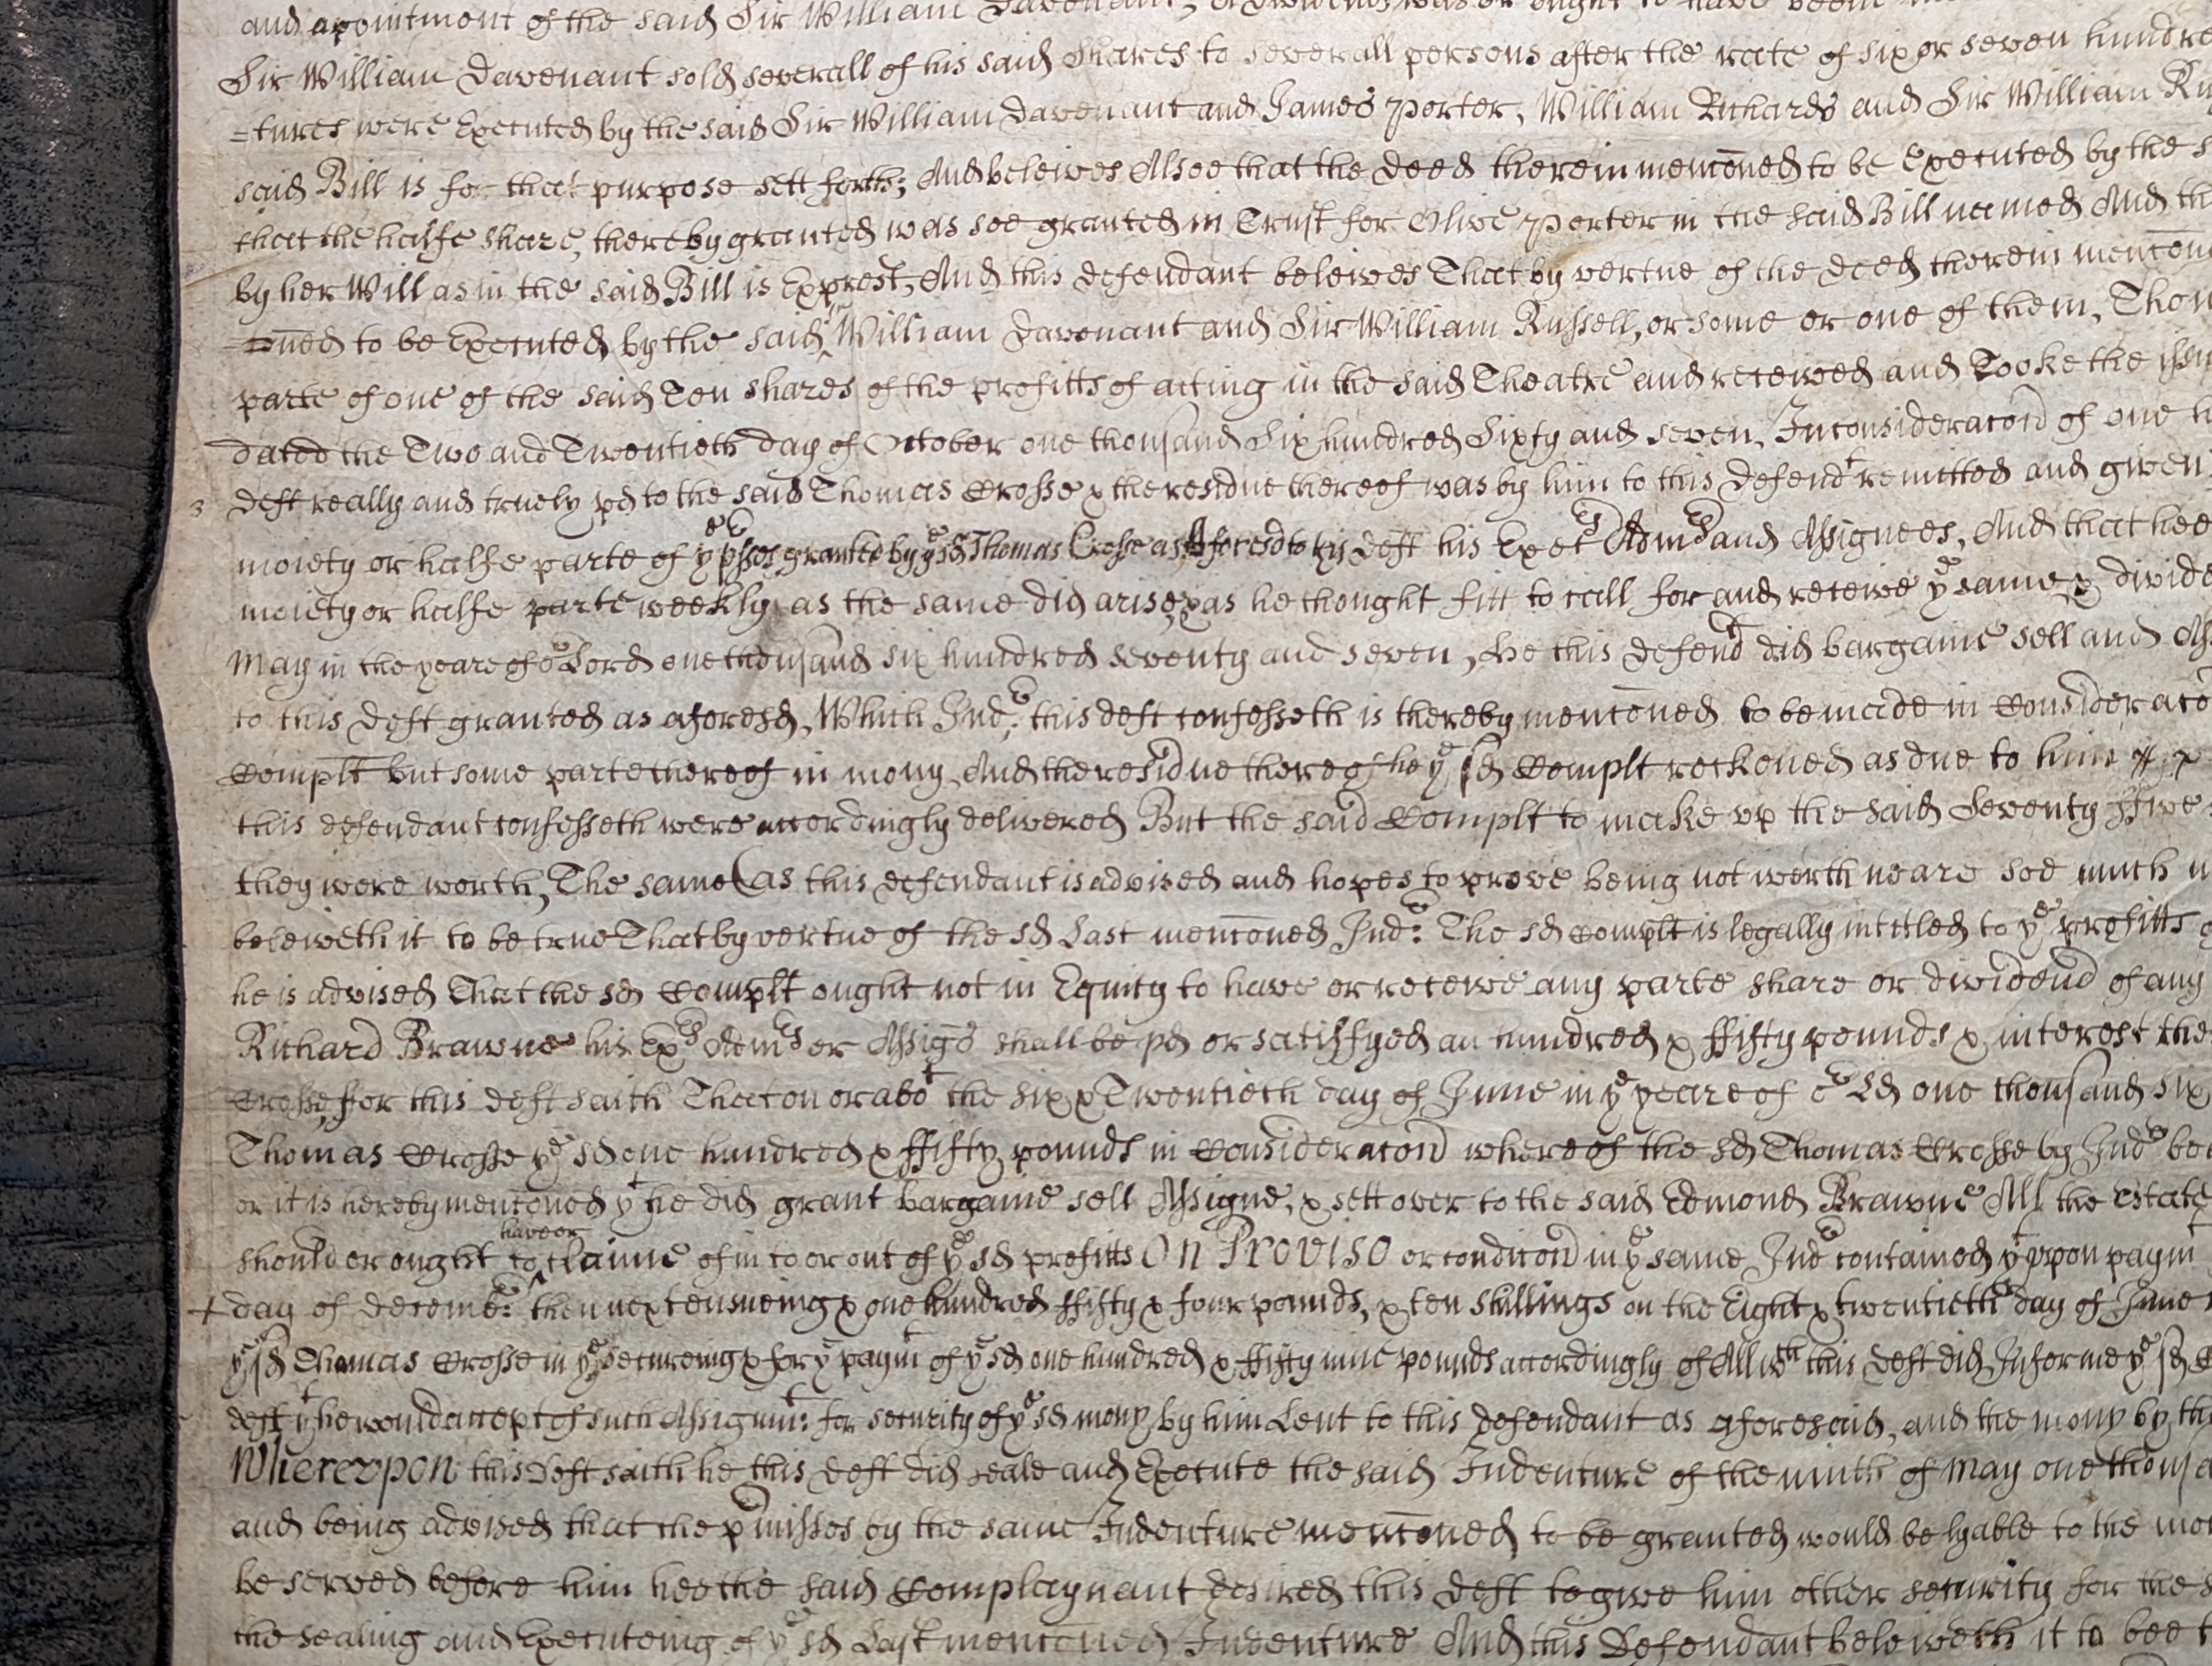 and apointment of the said Sir William Davenant, or ought to have been
Sir William Davenant sold severall of his said Shares to severall persons after the rate of six or seven hundre
=tures were Executed by the said Sir William Davenant and James Porter, William Richards and Sir William Ru
said Bill is for that purpose sett forth; And beleives Alsoe that the Deed therein menc̄oned to be Executed by the s
that the halfe share, thereby granted was soe granted in Trust for Olive Porter in the said Bill named And th
by her Will as in the said Bill is Exprest, And this defendant beleives That by vertue of the Deed therein menc̄on
=oned to be Executed by the said ^ William Davenant and Sir William Russell, or some or one of them, Thom
parte of one of the said Ten shares of the profitts of acting in the said Theatre and received and Tooke the issu
dated the Two and Twentieth day of October one thousand Six hundred Sixty and seven, In consideracon of one h
deft really and truely pd to the said Thomas Crosse & the residue thereof was by him to this defendt remitted and given
moiety or halfe parte of ye p̱sses granted by ye sd Thomas Crosse as Aforesd to this deft his Execrs Admrs and Assignees, And that hee
moiety or halfe parte weekly, as the same did arise, & as he thought fitt to call for and receive ye same & divide
May in the yeare of or Lord one thousand six hundred seventy and seven, he this defendt did bargaine sell and As
to this Deft granted as aforesd, Which Indre: this deft confesseth is thereby menc̄oned to be made in Consideraco
Complt but some parte thereof in mony And the residue thereof he ye sd Complt reckoned as due to him
this defendant confesseth were accordingly delivered But the said Complt to make vp the said Seventy ffive
they were worth, The same (as this defendant is advised and hopes to prove being not worth neare soe much
beleiveth it to be true That by vertue of the sd Last menc̄oned Indre: The sd Complt is legally intitled to ye profitts
he is advised That the sd Complt ought not in Equity to have or receive any parte share or dividend of any
Richard Brawne his Exrs Admrs or Assigs shall be pd or satisfyed an hundred & ffifty pounds & interest the
Crosse, for this deft saith That on or abot the six & Twentieth day of June in ye yeare of or Ld one thousand six
Thomas Crosse ye sd one hundred & ffifty pounds in Consideracon whereof the sd Thomas Crosse by Indre be
or it is hereby menc̄oned yt he did grant bargaine sell Assigne, & sett over to the said Edmond Brawne All the Estate
should or ought to ^have or claime of in to or out of ye sd profitts On Proviso or condicon in ye same Indre contained yt vpon paymt
day of Decembr: then next ensueing & one hundred ffifty & four pounds, & ten shillings on the Eight & twentieth day of June
ye sd Thomas Crosse in ye secureing & for ye paymt of ye sd one hundred & ffifty nine pounds accordingly of All wch this deft did Informe ye sd C
deft yt he would accept of such Assignmt: for security of ye sd mony by him Lent to this defendant as aforesaid, and the mony by th
Wherevpon this Deft saith he this Deft did seale and Execute the said Indenture of the ninth of May one thousa
and being advised that the p̱misses by the same Indenture menc̄oned to be granted would be lyable to the mo
be served before him hee the said Complaynant desired this Deft to give him other security for the s
the sealing and Executeing of ye sd Last menc̄oned Indenture And this Defendant beleiveth it to bee t